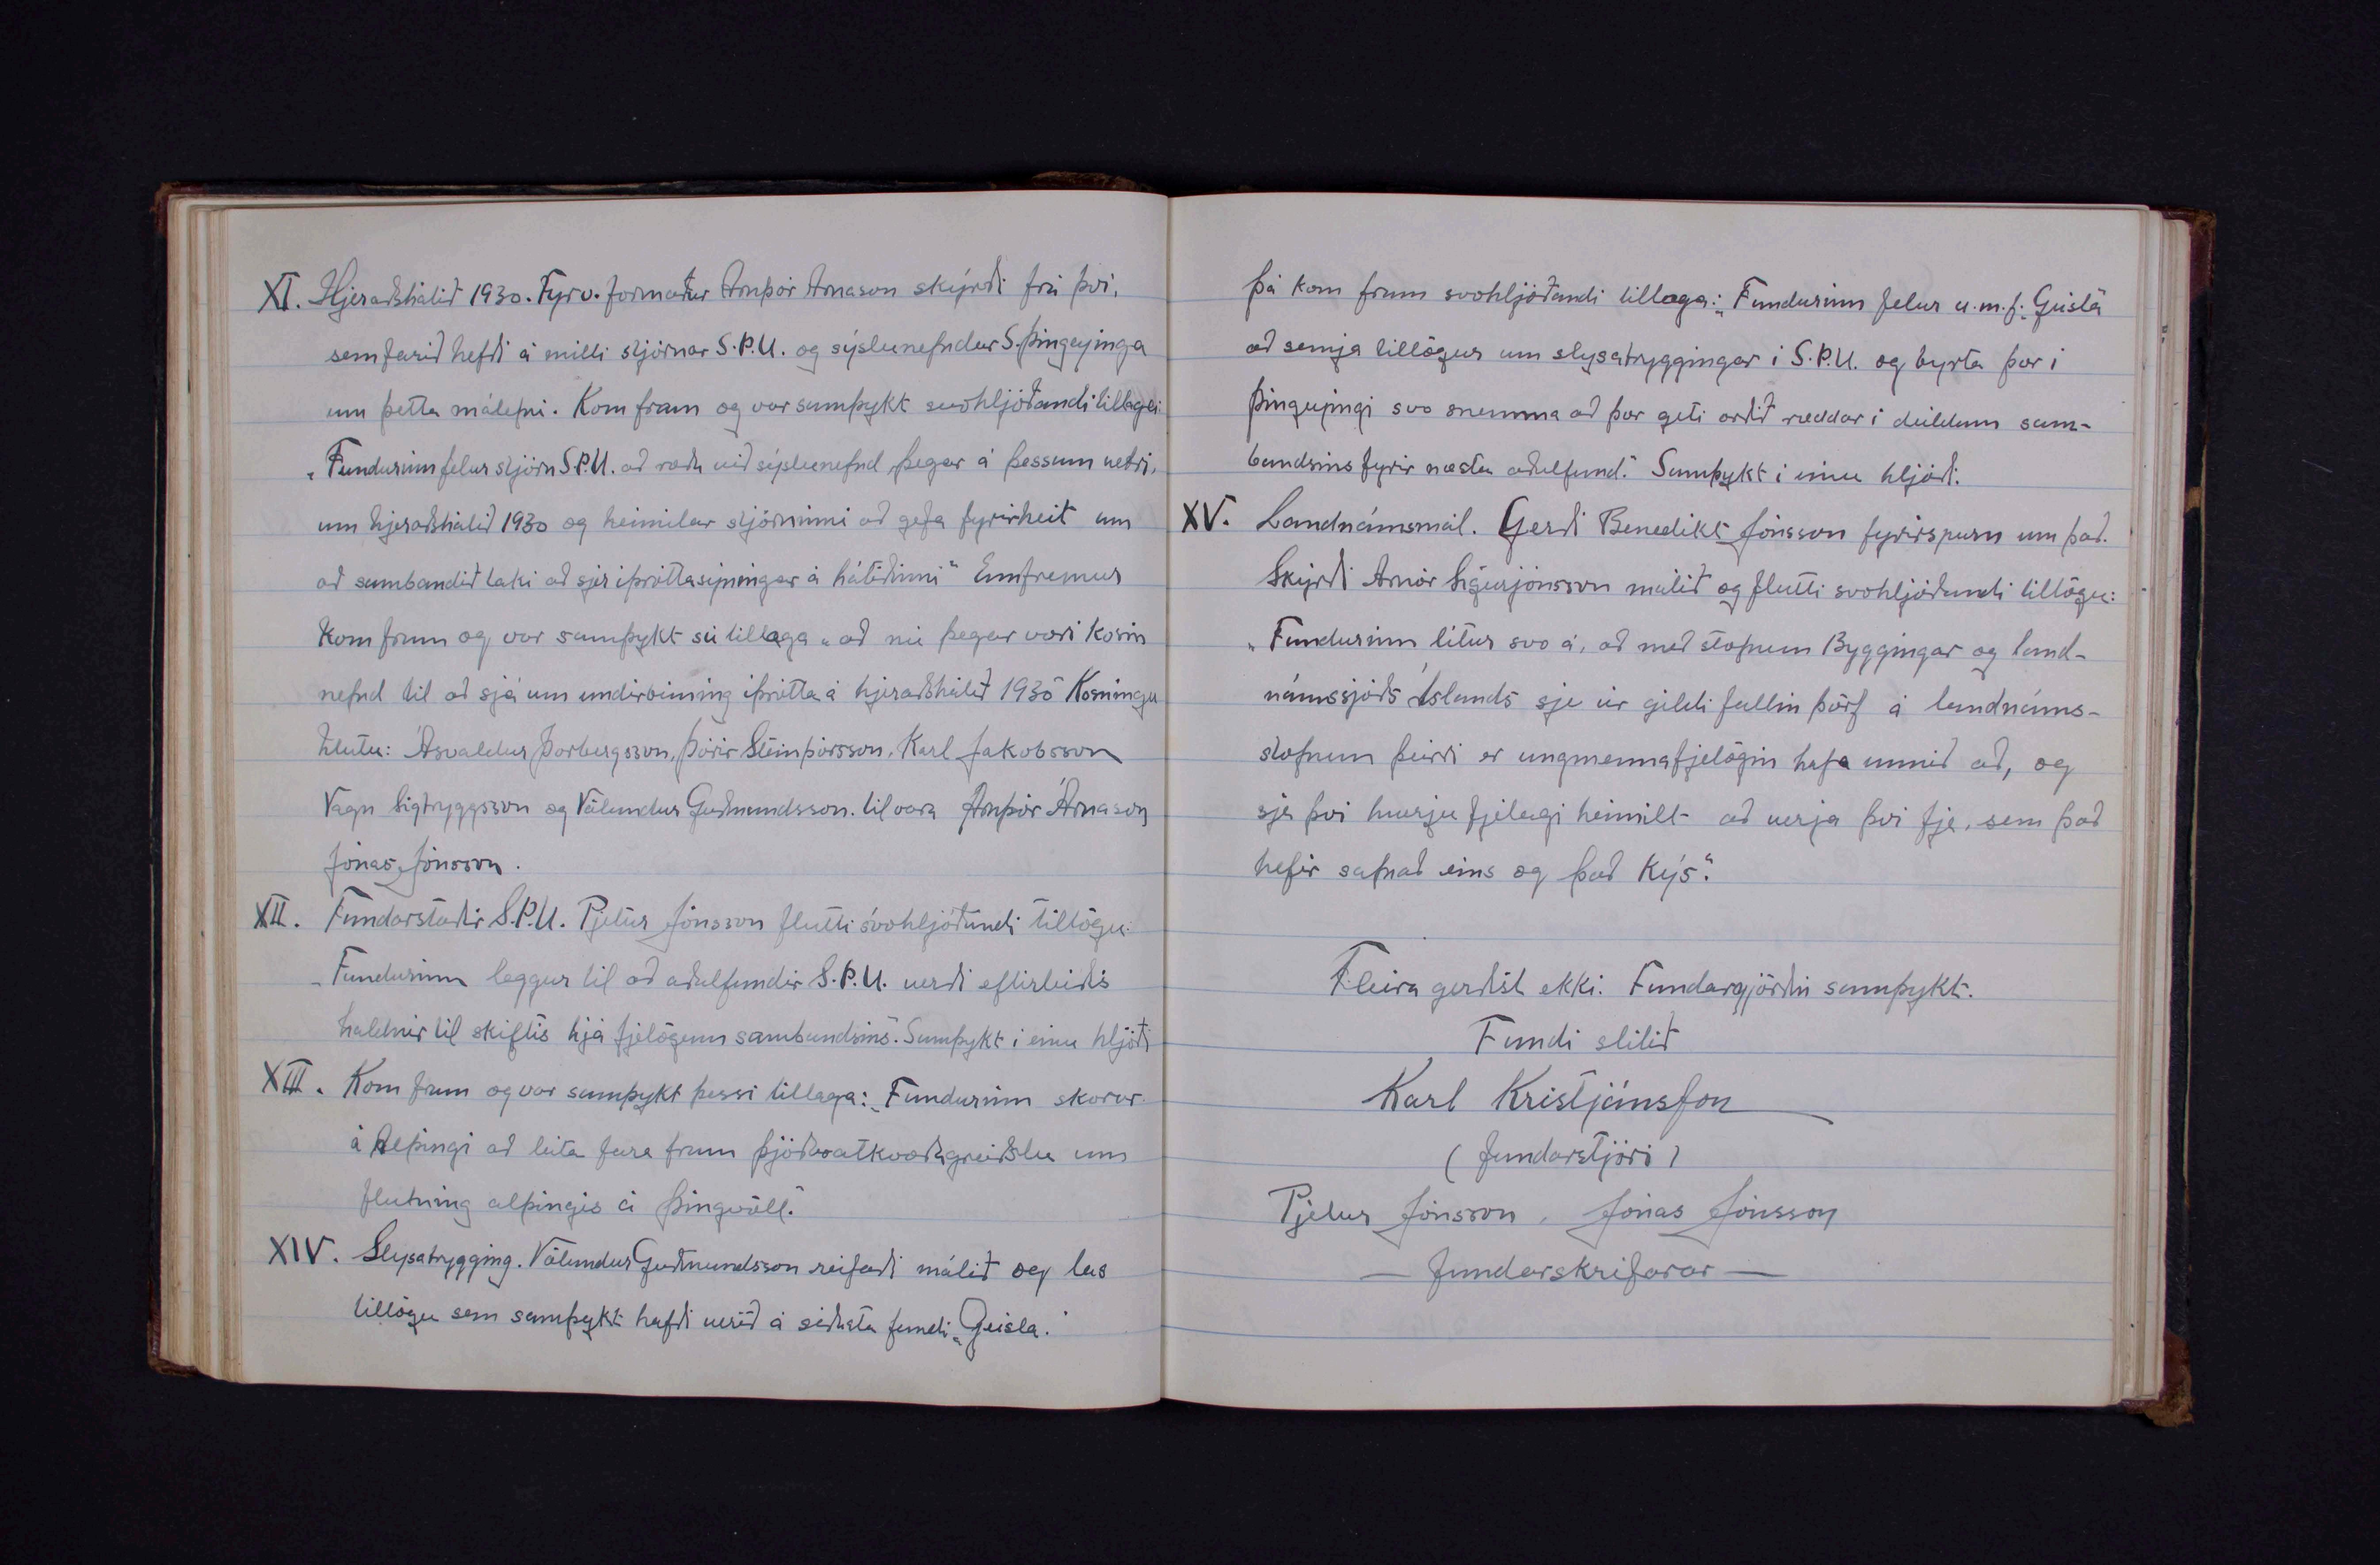 XI. Hjeraðshátíð 1930. Fyrv. formaður Arnþór Árnason skýrði frá því,
sem farið hefði á milli stjórnar S.Þ.U. og sýslunefndar S.Þingeyinga
um þetta málefni. Kom fram og var samþykt svohljóðandi tillaga:
„Fundurinn felur stjórn S.Þ.U. að ræða við sýslunefnd þegar á þessum vetri,
um hjeraðshátíð 1930 og heimilar stjórninni að gefa fyrirheit um
að sambandið taki að sjer íþróttasýningar á hátíðinni“ Ennfremur
kom fram og var samþykt sú tillaga „að nú þegar væri kosin
nefnd til að sjá um undirbúning íþrótta á hjeraðshátíð 1930“ Kosningu
hlutu: Ásvaldur Þorbergsson, Þórir Steinþórsson, Karl Jakobsson
Vagn Sigtryggsson og Völundur Guðmundsson. til vara Arnþór Árnason
Jónas Jónsson.
XII. Fundarstaðir S.Þ.U. Pjetur Jónsson flutti svohljóðandi tillögu:
„Fundurinn leggur til að aðalfundir S.Þ.U. verði eftirleiðis
haldnir til skiftis hjá fjelögum sambandsins“. Samþykt í einu hljóði
XIII. Kom fram og var samþykt þessi tillaga: „Fundurinn skorar
á Alþingi að láta fara fram þjóðaratkvæðagreiðslu um
flutning alþingis á Þingvöll.“
XIV. Slysatrygging. Völundur Guðmundsson reifaði málið og las
tillögu sem samþykt hafði verið á síðasta fundi „Geisla.“
Þá kom fram svohljóðandi tillaga: „Fundurinn felur u.m.f. „Geisla“
að semja tillögur um slysatryggingar í S.Þ.U. og byrta þær í
þingeyingi svo snemma að þær geti orðið ræddar í deildum sam-
bandsins fyrir næsta aðalfund.“ Samþykt í einu hljóði.
XV. Landnámsmál. Gerði Benedikt Jónsson fyrirspurn um það.
Skýrði Arnór Sigurjónsson málið og flutti svohljóðandi tillögu:
„Fundurinn lítur svo á, að með stofnun Byggingar og land-
námssjóðs Íslands sje úr gildi fallin þörf á landnáms-
stofnun þeirri er ungmennafjelögin hafa unnið að, og
sje því hverju fjelagi heimilt að verja því fje, sem það
hefir safnað eins og það kýs“.
Fleira gerðist ekki. Fundargjörðin samþykt.
Fundi slitið
Karl Kristjánsson
(fundarstjóri)
Pjetur Jónsson, Jónas Jónsson
— fundarskrifarar —